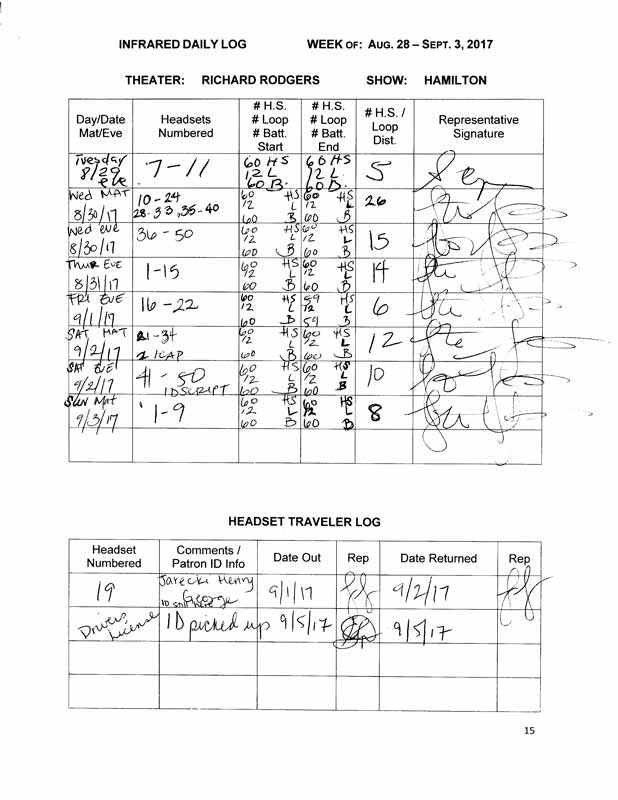 INFRARED DAILY LOG WEEK OF: AUG. 28 – SEPT. 3, 2017
THEATER: RICHARD RODGERS SHOW: HAMILTON
Day/Date Mat/Eve Headsets Numbered # H.S. # Loop # Batt. Start # H.S. # Loop # Batt. End # H.S. / Loop Dist. Representative Signature
Tuesday 8/29 eve 7-11 60 HS 12 L 60 B. 60 HS 12 L 60 B. 5
Wed MAT 8/30/17 10-24 28-33, 35-40 60 HS 12 L 60 B 60 HS 12 L 60 B 26
Wed eve 8/30/17 36-50 60 HS 12 L 60 B 60 HS 12 L 60 B 15
Thur EVE 8/31/17 1-15 60 HS 12 L 60 B 60 HS 12 L 60 B 14
FRI EVE 9/1/17 16-22 60 HS 12 L 60 B 59 HS 12 L 59 B 6
SAT MAT 9/2/17 21-34 2 ICAP 60 HS 12 L 60 B 60 HS 12 L 60 B 12
SAT EVE 9/2/17 41-50 1 DSCRIPT 60 HS 12 L 60 B 60 HS 12 L 60 B 10
SUN Mat 9/3/17 1-9 60 HS 12 L 60 B 60 HS 12 L 60 B 8
HEADSET TRAVELER LOG
Headset Numbered Comments / Patron ID Info Date Out Rep Date Returned Rep
19 Jarecki Henry George ID still here 9/1/17 9/2/17
Drivers License ID picked up 9/5/17 9/5/17
15